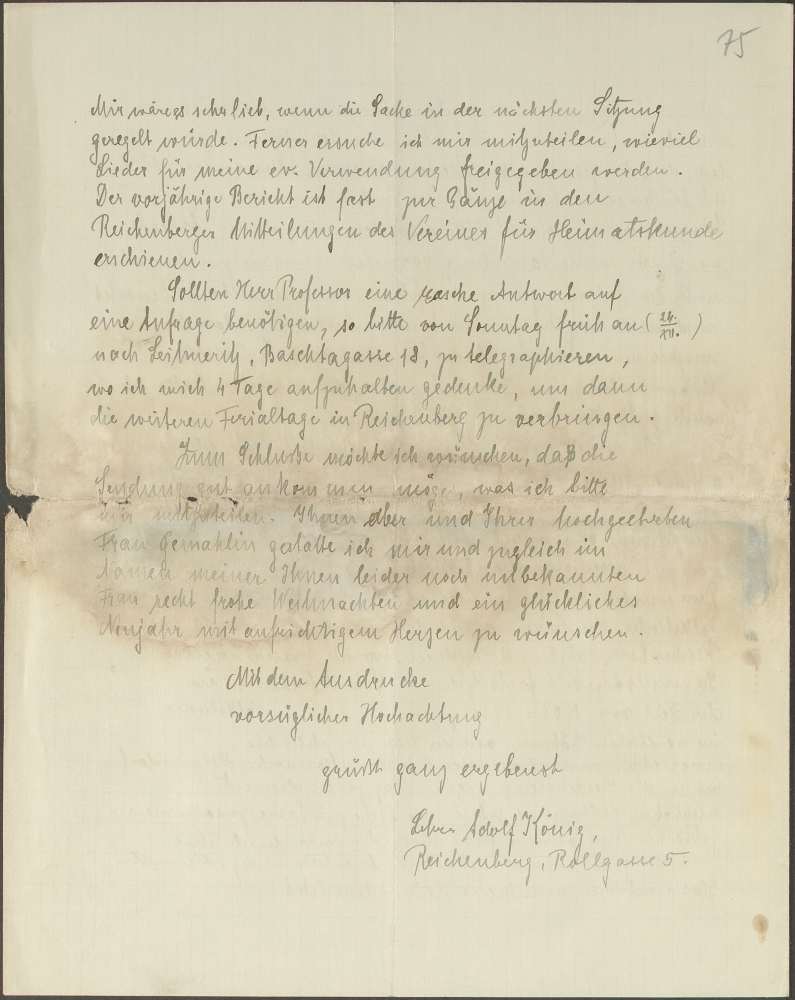 75
Mir wäre es sehr lieb, wenn die Sache in der nächsten Sitzung
geregelt würde. Ferner ersuche ich mir mitzuteilen, wieviel
Lieder für meine ev. Verwendung freigegeben werden.
Der vorjährige Bericht ist fast zur Gänze in den
Reichenberger Mitteilungen des Vereines für Heimatskunde
erschienen.
Sollten Herr Professor eine rasche Antwort auf
eine Anfrage benötigen, so bitte von Sonntag früh an (24./XII.)
nach Leitmeritz, Baschtagasse 18, zu telegraphieren,
wo ich mich 4 Tage aufzuhalten gedenke, um dann
die weiteren Ferialtage in Reichenberg zu verbringen.
Zum Schluße möchte ich wünschen, daß die
Sendung gut ankommen möge, was ich bitte
mir mitzuteilen. Ihnen aber und Ihrer hochgeehrten
Frau Gemahlin gestatte ich mir und zugleich im
Namen meiner Ihnen leider noch unbekannten
Frau recht frohe Weihnachten und ein glückliches
Neujahr mit aufrichtigem Herzen zu wünschen.
Mit dem Ausdrucke
vorzüglicher Hochachtung
grüßt ganz ergebenst
Lehrer Adolf König,
Reichenberg, Rollgasse 5.